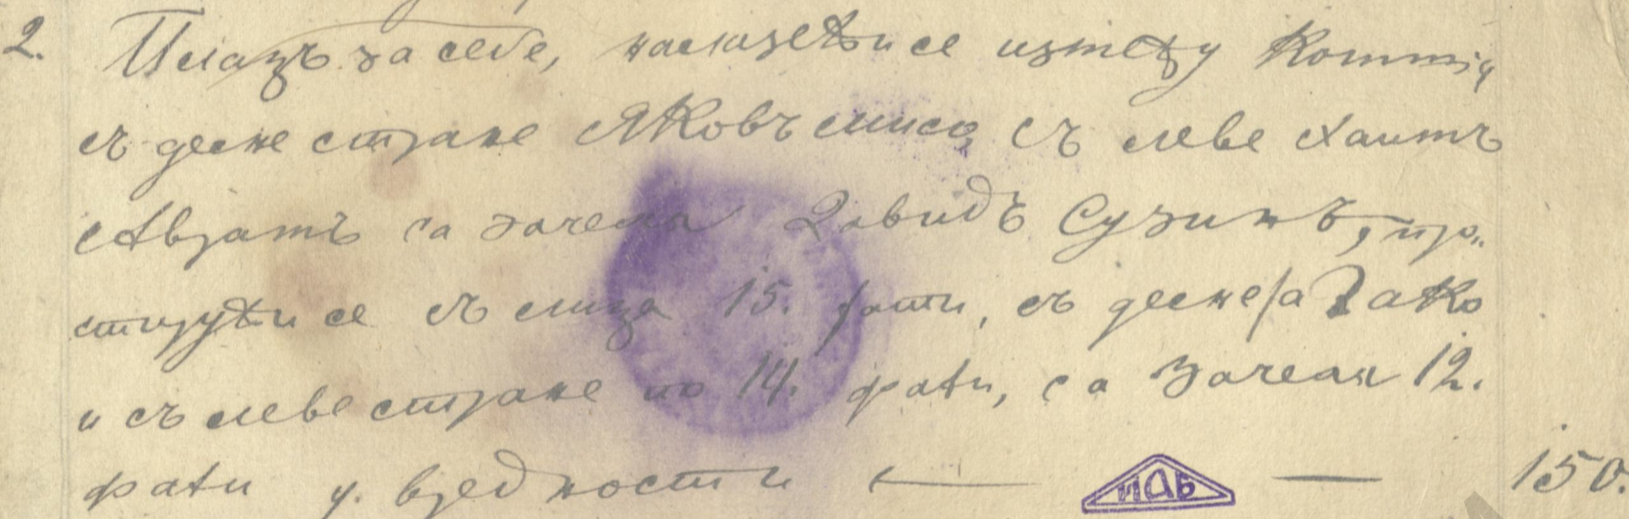 2. Плацъ за себе, налазећи се између Комши
съ десне стране Яковъ съ леве Хаимъ
Авратъ са зачеля Давидъ Сузинъ, про„
стирући се съ лица 15. фати, съ десне
и съ леве стране по 14. фати, са Зачеля 12.
фати у вредности — ИАБ — 150.